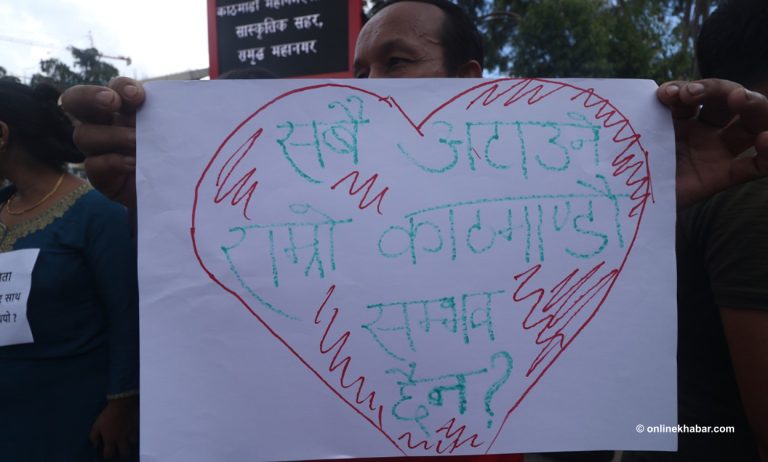 सांस्कृतिक सहर,
समृद्ध महानगर
सबै अटाउने
राम्रो काठमाण्डौ
सम्भव
छैन?
साथ
© onlinekhabar.com